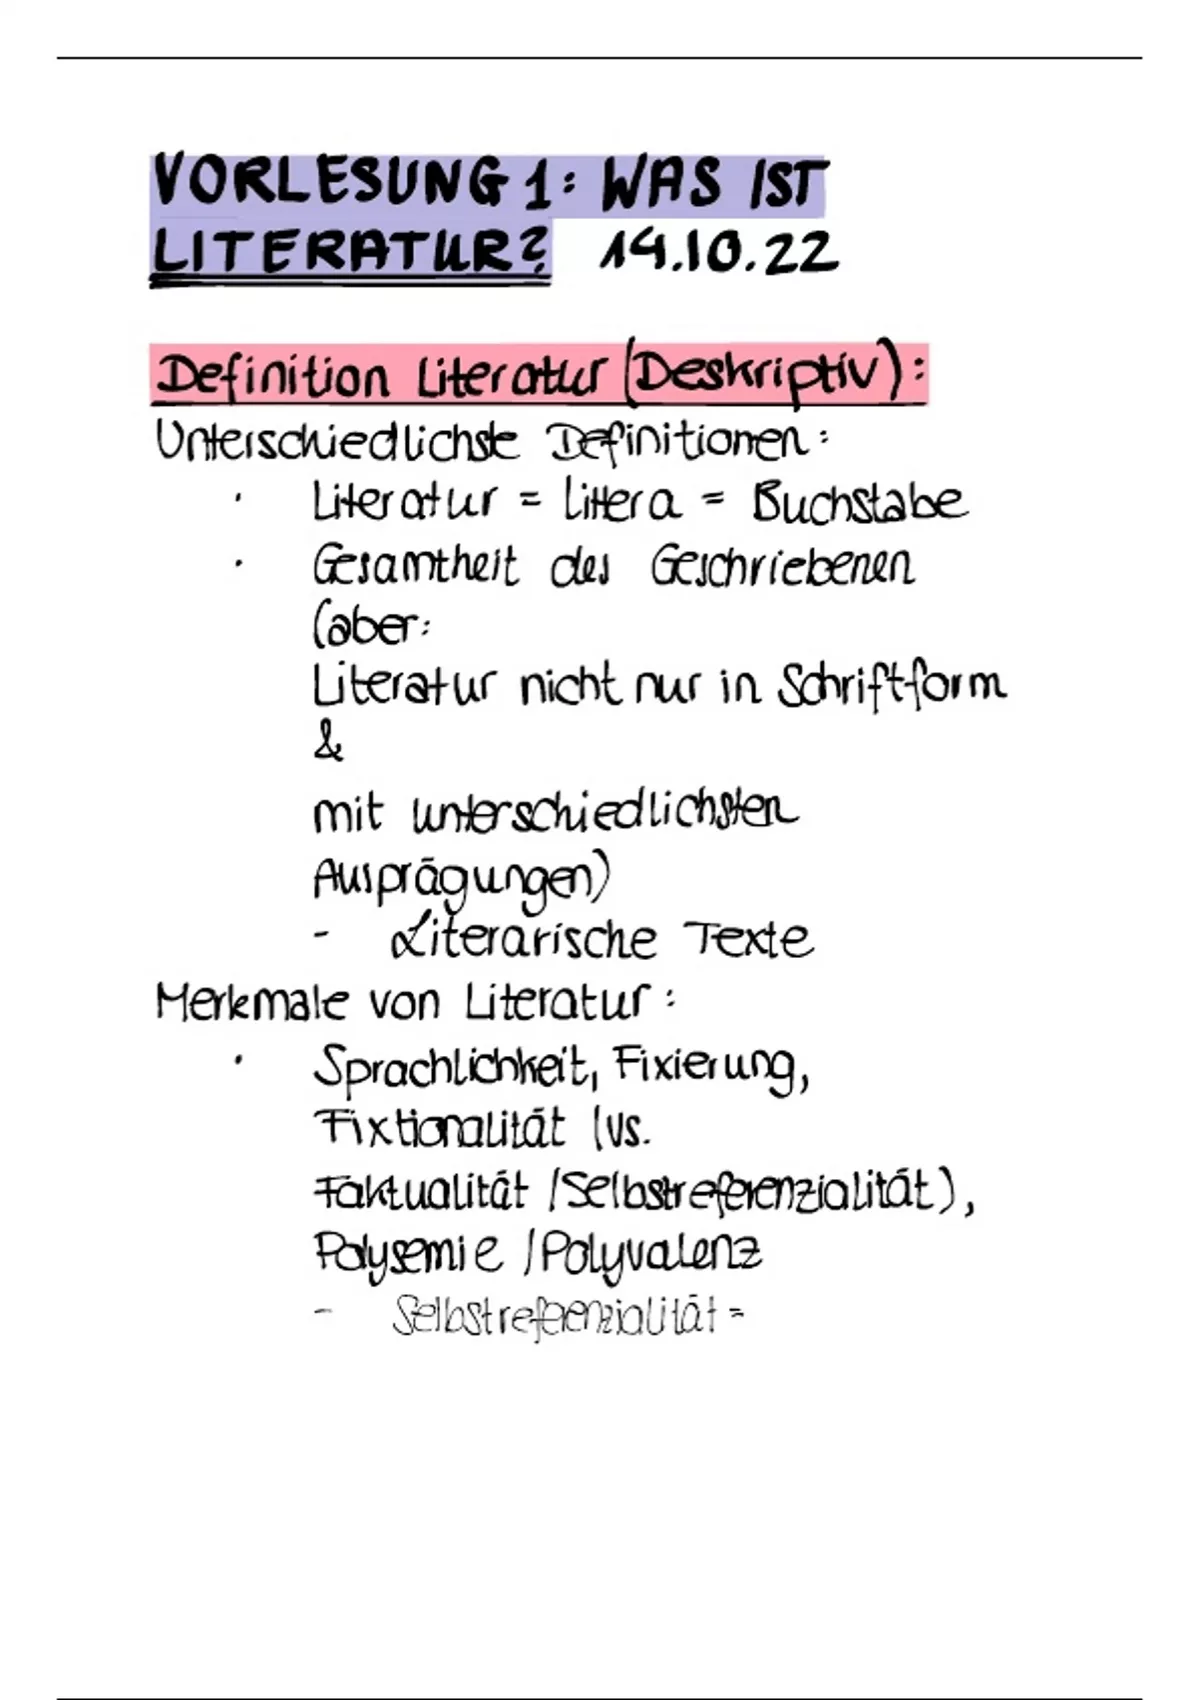 VORLESUNG 1: WAS IST
LITERATUR? 14.10.22
Definition Literatur (Deskriptiv):
Unterschiedlichste Definitionen:
· Literatur = Littera = Buchstabe
· Gesamtheit des Geschriebenen
(aber:
Literatur nicht nur in Schriftform
&
mit unterschiedlichsten
Ausprägungen)
- Literarische Texte
Merkmale von Literatur:
· Sprachlichkeit, Fixierung,
Fixtionalität (vs.
Faktualität /Selbstreferenzialität),
Polysemie /Polyvalenz
- Selbstreferenzialität =